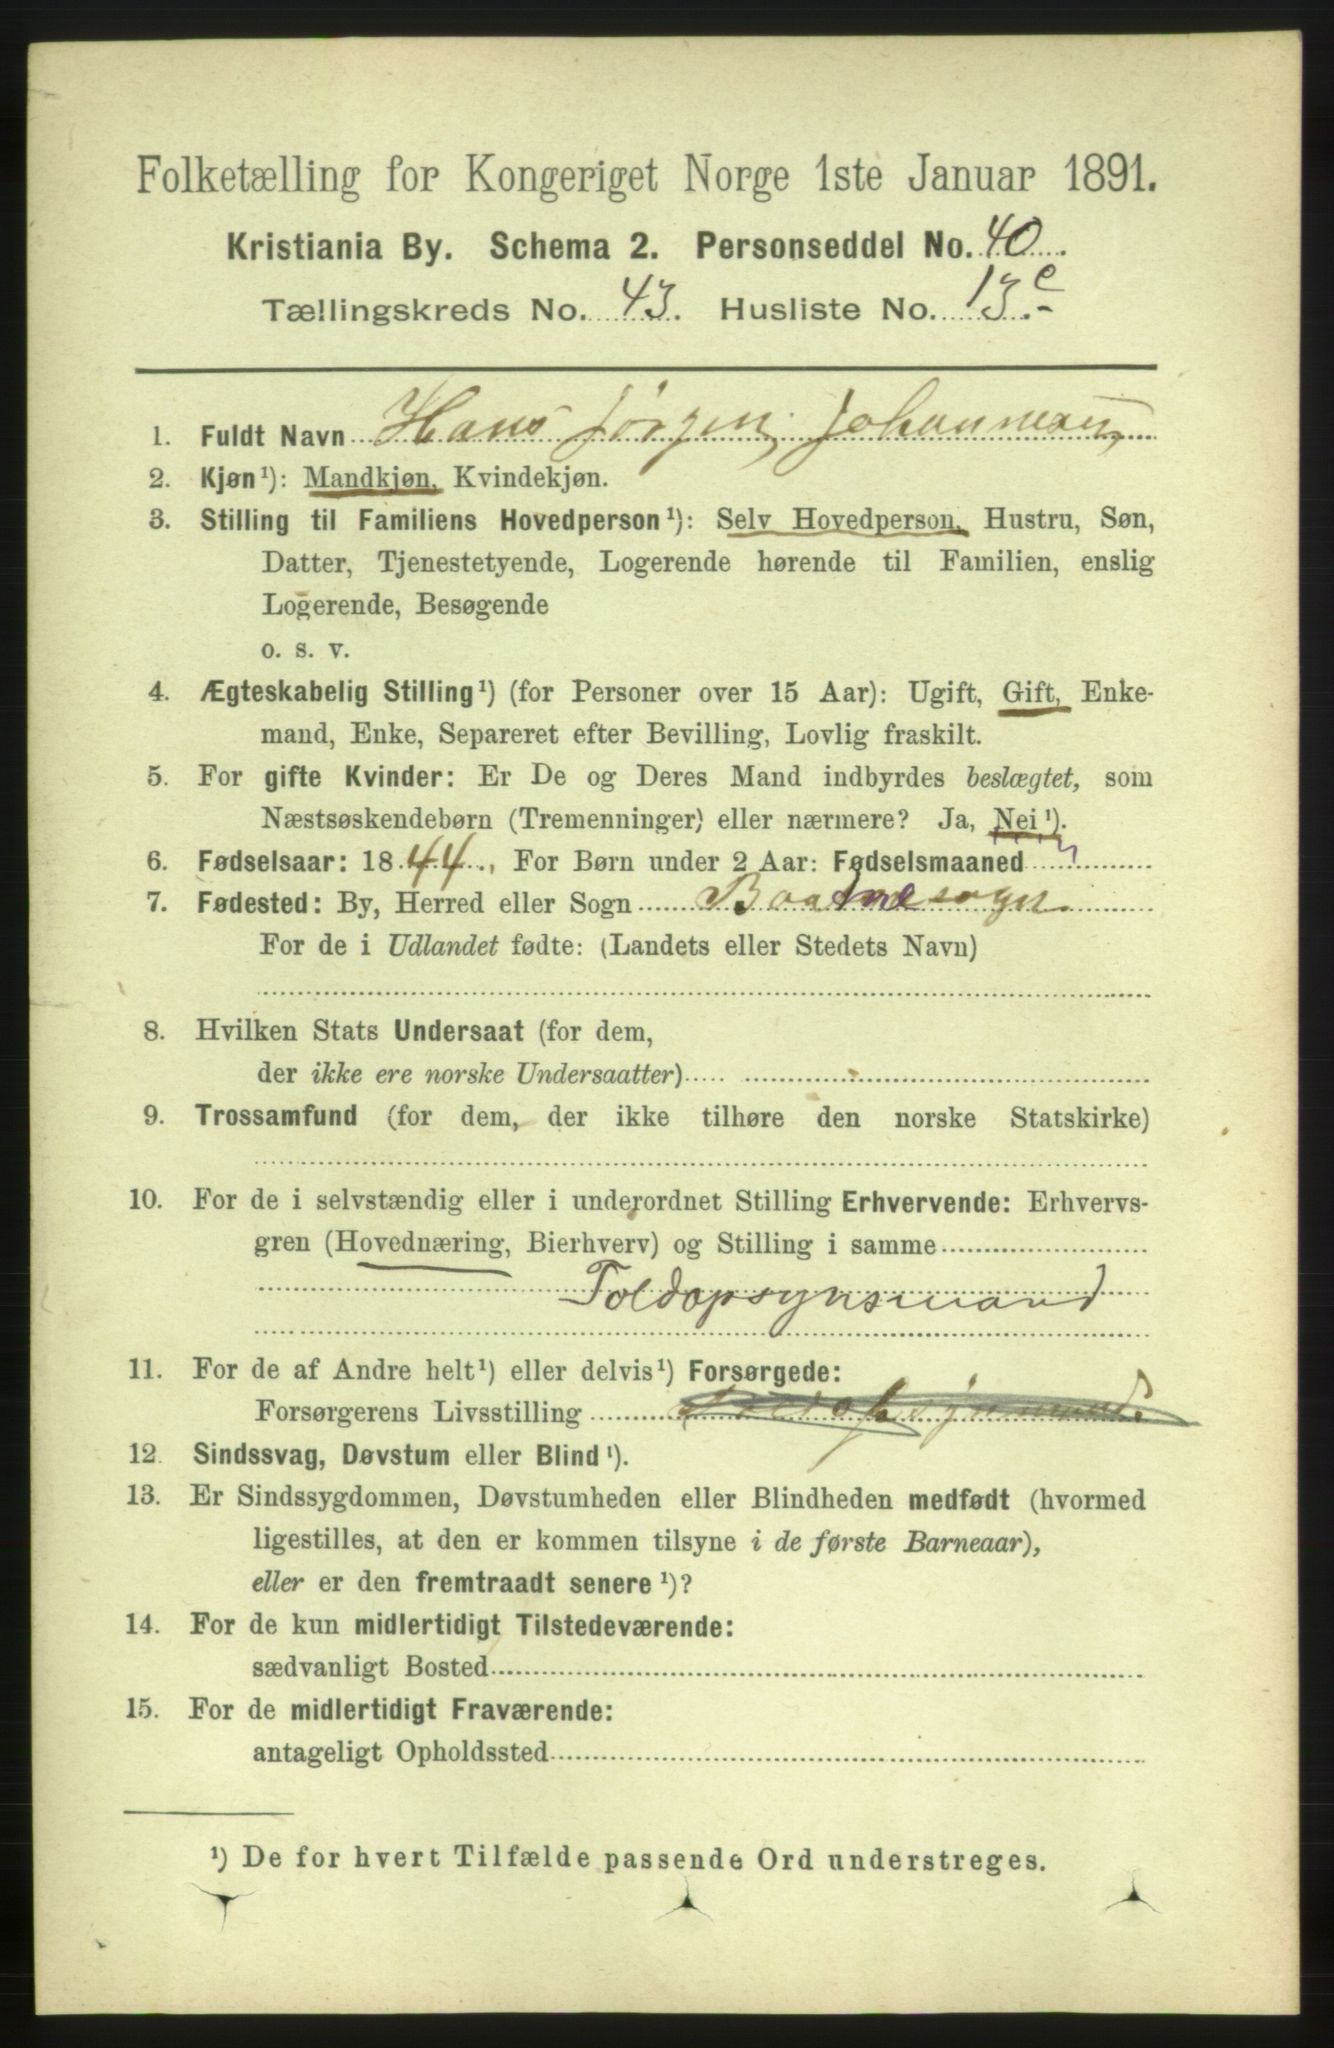 Folketælling for Kongeriget Norge 1ste Januar 1891.
Kristiania By. Schema 2. Personseddel No. 40
Tællingskreds No. 43. Husliste No. 13.e
1. Fuldt Navn Hans Jørgen Johannesen
2. Kjøn¹): Mandkjøn, Kvindekjøn.
3. Stilling til Familiens Hovedperson¹): Selv Hovedperson, Hustru, Søn,
Datter, Tjenestetyende, Logerende hørende til Familien, enslig
Logerende, Besøgende
o. s. v.
4. Ægteskabelig Stilling¹) (for Personer over 15 Aar): Ugift, Gift, Enke-
mand, Enke, Separeret efter Bevilling, Lovlig fraskilt.
5. For gifte Kvinder: Er De og Deres Mand indbyrdes beslægtet, som
Næstsøskendebørn (Tremenninger) eller nærmere? Ja, Nei¹).
6. Fødselsaar: 1844., For Børn under 2 Aar: Fødselsmaaned
7. Fødested: By, Herred eller Sogn
For de i Udlandet fødte: (Landets eller Stedets Navn)
8. Hvilken Stats Undersaat (for dem,
der ikke ere norske Undersaatter)
9. Trossamfund (for dem, der ikke tilhøre den norske Statskirke)
10. For de i selvstændig eller i underordnet Stilling Erhvervende: Erhvervs-
gren (Hovednæring, Bierhverv) og Stilling i samme
Toldopsynsmand
11. For de af Andre helt¹) eller delvis¹) Forsørgede:
Forsørgerens Livsstilling Toldopsynsmand.
12. Sindssvag, Døvstum eller Blind¹).
13. Er Sindssygdommen, Døvstumheden eller Blindheden medfødt (hvormed
ligestilles, at den er kommen tilsyne i de første Barneaar),
eller er den fremtraadt senere¹)?
14. For de kun midlertidigt Tilstedeværende:
sædvanligt Bosted
15. For de midlertidigt Fraværende:
antageligt Opholdssted
¹) De for hvert Tilfælde passende Ord understreges.